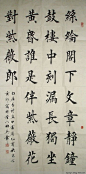 絲綸閣下文章靜鐘
鼓樓中刻漏長獨坐
黃昏誰是伴紫薇花
對紫薇郎